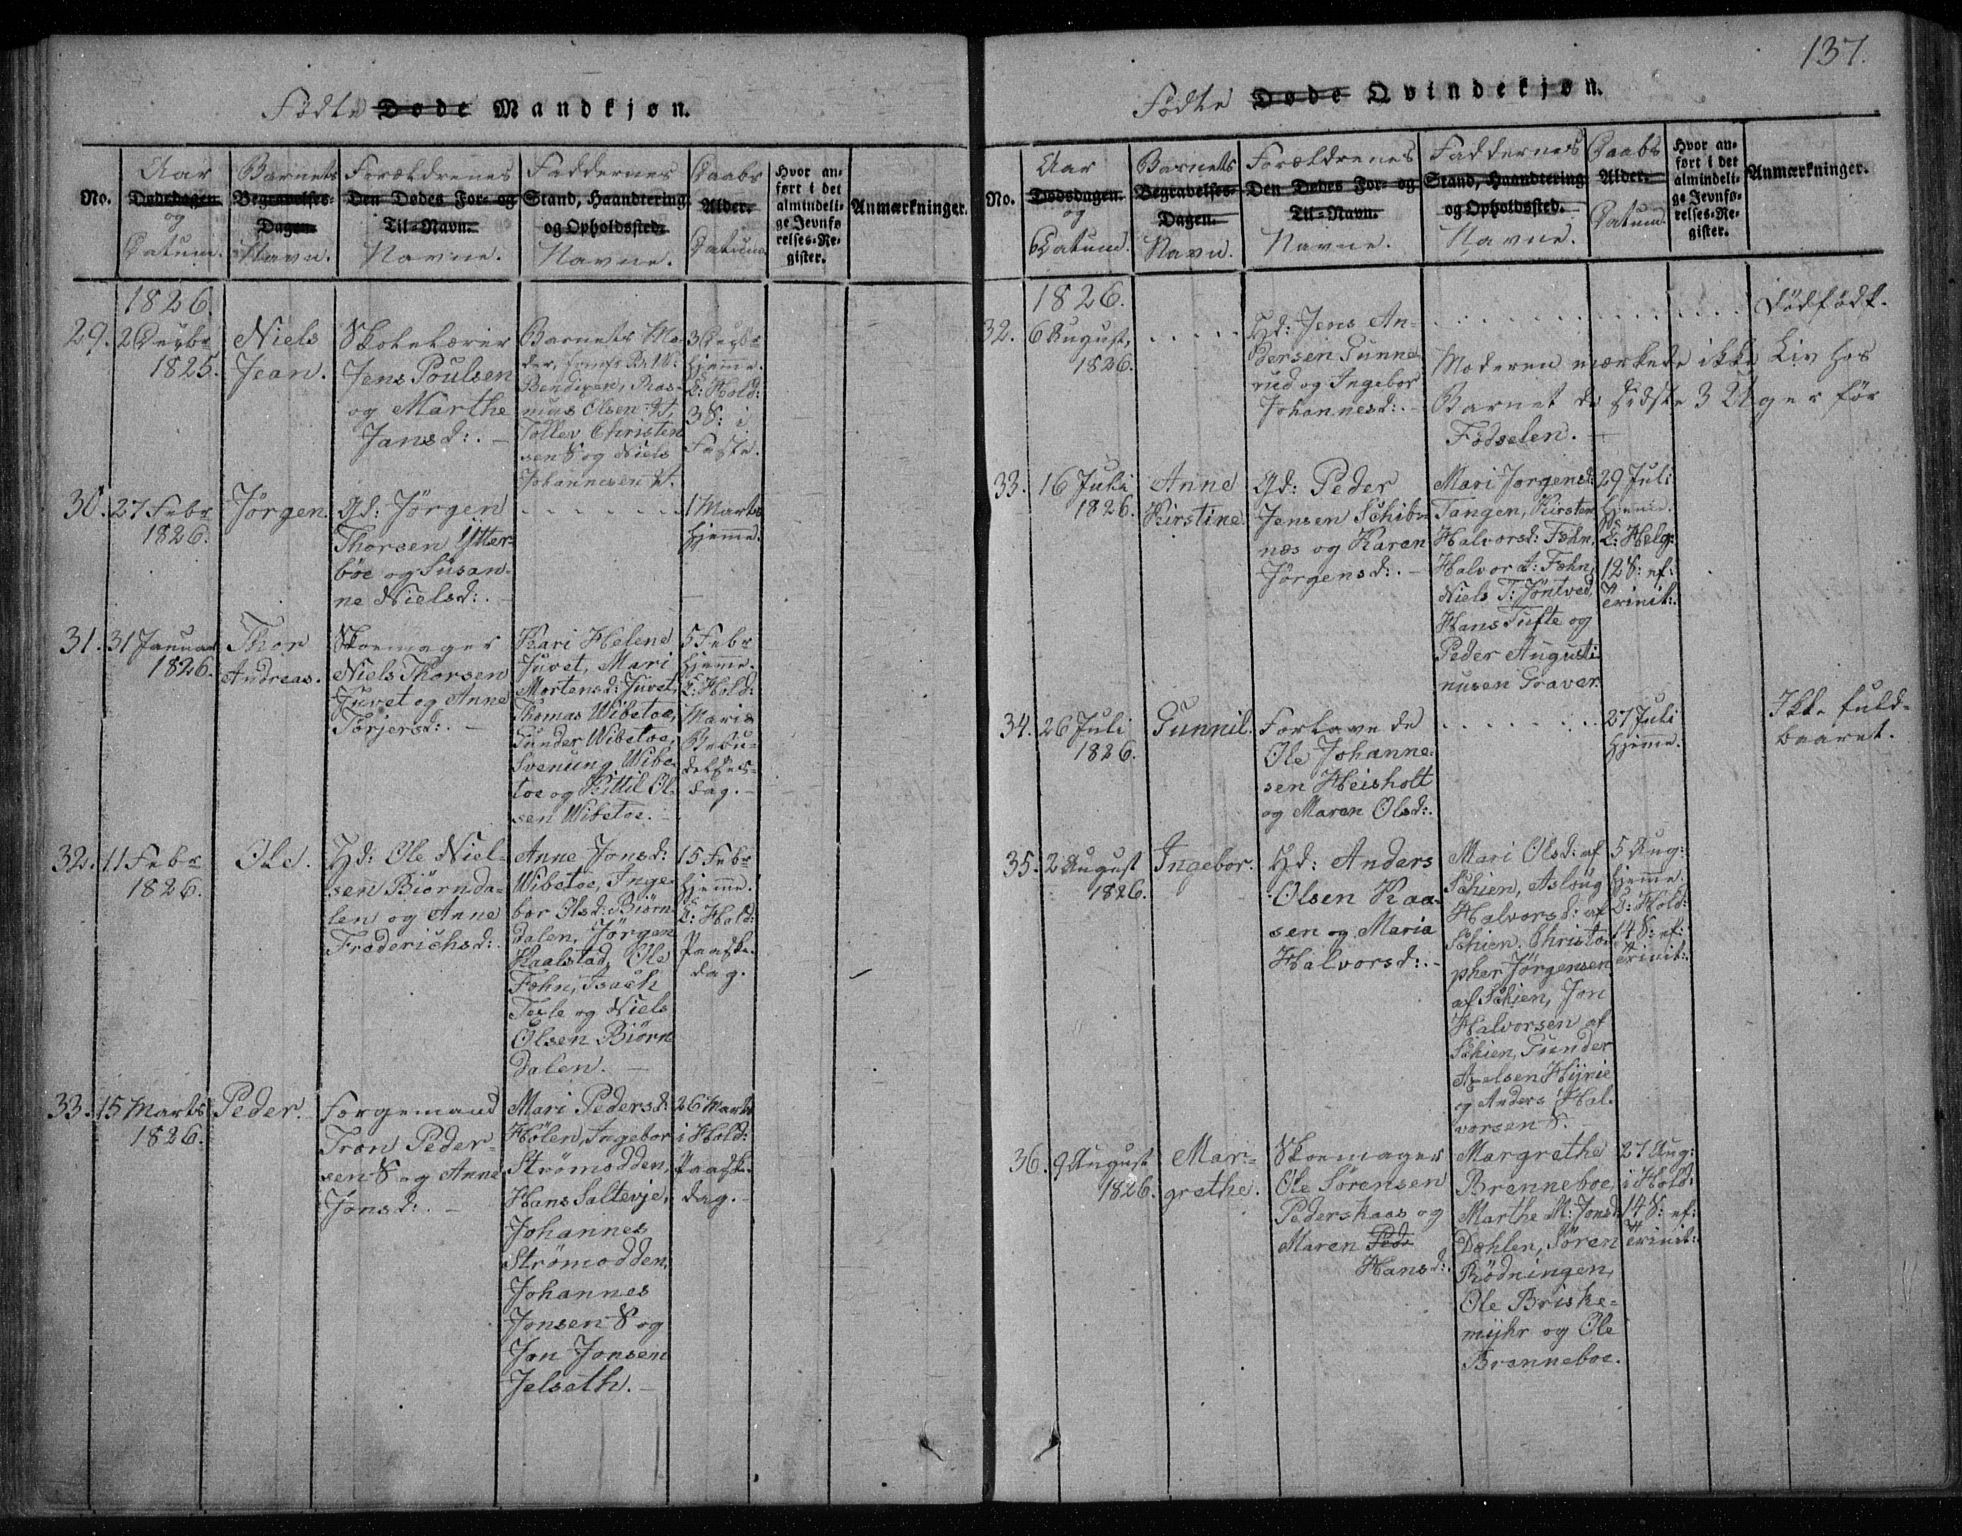 137.
Födte Døde Mandkjøn.
No.
Aar
Dødsdagen
og
Datum.
Barnets
Begravelses-
Dagen.
Navn.
Forældrenes
Den Dødes For- og
Til-Navn.
Navne.
Faddernes
Stand, Haandtering
og Opholdssted.
Navne.
Daabs
Alder.
Datum.
Hvor an-
ført i det
almindeli-
ge Jevnfø-
relses-Re-
gister.
Anmærkninger.
1826.
29.
2 Decbr
1825.
Niels
Jean.
Skolelærer
Jens Poulsen
og Marthe
Jansd:. –
Barnets Mo-
der,
Bendixen, Ras-
mus Olsen
Tollev Christen
sen S og Niels
Johannesen
3 Decbr
hjemme.
D: i Hold:
3 S: i
Faste.
30.
27 Febr
1826.
Jörgen.
Gd: Jörgen
Thorsen Ytter-
böe og Susan-
ne Nielsd:. –
. . . . . . .
1 Marts
hjemme.
31.
31 Januar
1826.
Thor
Andreas.
Skoemager
Niels Thorsen
Juvet og Anne
Torjersd:. –
Kari Helene
Juvet, Mari
Mortensd: Juvet,
Thomas Wibetoe,
Gunder Wibetoe,
Svenung Wibe-
toe og Kittil Ol-
sen Wibetoe. –
5 Febr
hjemme.
D: i Hold:
Mariæ
Bebu-
delses-
dag. –
32.
11 Febr
1826.
Ole.
Hd: Ole Niel-
sen Biörnda-
len og Anne
Frederichsd:.
Anne Jonsd:
Wibetoe, Inge-
bor Olsd: Biörn
dalen, Jörgen
Kaalstad, Ole
Fæhn, Isach
Teile og Niels
Olsen Biörn
dalen. –
15 Febr
hjemme.
D: i Hold:
Paaske-
dag.
33.
15 Marts
1826.
Peder.
Forgemand
Tron Peder-
sen S og Anne
Jonsd:. –
Mari Pedersd:
Hölen, Ingebor
Strömodden,
Hans Saltevje,
Johannes
Strömodden,
Johannes
Jonsen S og
Jon Jonsen
Jelseth. –
26 Marts
i Hold:
Paaske-
dag. –
Födte Døde Qvindekjøn.
No.
Aar
Dødsdagen.
og
Datum.
Barnets
Begravelses-
Dagen.
Navn.
Forældrenes
Den Dødes For- og
Til-Navn.
Navne.
Faddernes
Stand, Haandtering
og Opholdssted.
Navne.
Daabs
Alder.
Datum.
Hvor an-
ført i det
almindeli-
ge Jevnfø-
relses-Re-
gister.
Anmærkninger.
1826.
32.
6 August,
1826.
. . . . .
Hd: Jens An-
dersen Gunne
rud og Ingebor
Johannesd:. –
. . . . . . . . . . . .
Dödfödt.
Moderen mærkede ikke Liv hos
Barnet de sidste 3 Uger för
Födselen. –
33.
16 Juli
1826.
Anne
Kirstine.
Gd: Peder
Jensen Schibs-
næs og Karen
Jörgensd:. –
Mari Jorgensd:
Tangen, Kirsten
Halvorsd: Fæhn,
Halvor A: Fæhn,
Niels T: Jöntved,
Hans Tufte og
Peder Augusti-
nusen Graver.
29 Juli
hjemme.
D: i Helg:
12 S: ef:
Trinit:.
34.
26 Juli
1826.
Gunnil.
Forlovede
Ole Johanne-
sen Heisholt
og Maren Olsd:.
. . . . . . .
27 Juli
hjemme.
Ikke fuld-
baaret.
35.
2 August
1826.
Ingebor.
Hd: Anders
Olsen Kaa-
sen og Maria
Halvorsd:. –
Mari Olsd: af
Schien, Asloug
Halvorsd: af
Schien, Christo-
pher Jörgensen
af Schien, Jon
Halvorsen af
Schien, Gunder
Axelsen Hynie
og Anders Hal-
vorsen S.
5 Aug:
hjemme.
D: i Hold:
14 S: ef:
Trinit:
36.
9 August
1826.
Mar-
grethe.
Skoemager
Ole Sörensen
Pederskaas og
Maren Ped:
Hansd:.
Margrethe
Brenneboe,
Marthe M: Jonsd:
Dæhlen, Sören
Rödningen,
Ole Briske-
mÿhr og Ole
Brenneboe.
27 Aug:
i Hold:
14 S: ef:
Trinit:.